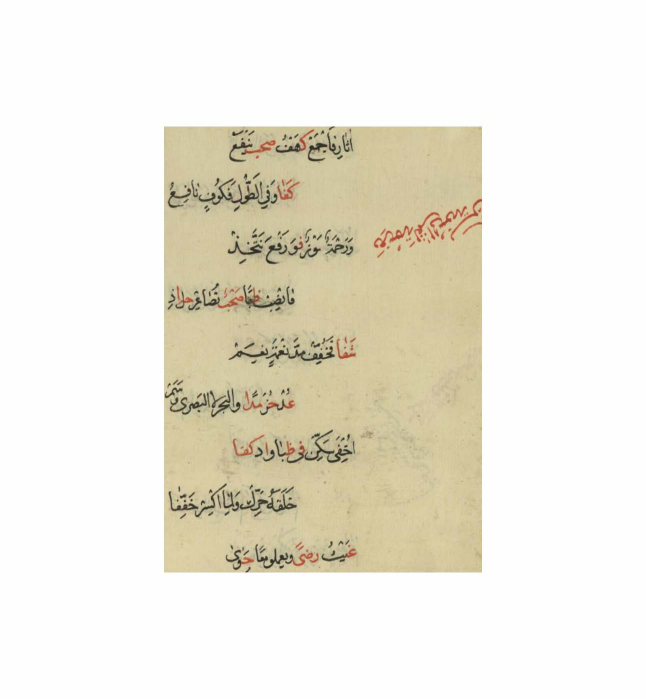 اثار فَاجْمَعْ كهْفُ صحب يَنْفَعْ
كَفَا وَفِي الطُّولِ فَكُوفٍ نافِعُ
وَرَحْمَةٌ فَوْزٌ وَرَفْعُ يَتَّخِذْ
فانصِبْ ظبًا صَحْبٌ تُصَاعِرْ حل اذ
شَفَا فَخَفِّفْ مدَّ نعْمَةٍ نعَمْ
عُدْ حُزْ مَدًا والبحرُ لا البَصرى وَسَمْ
اخْفِىَ سَكِّنْ فى ظبا واذ كفا
خَلَقَهُ حَرِّك لِمَا اكْسِرْ خَفِّفا
غَيْثُ رضًى ويعملو معًا حَوٰى